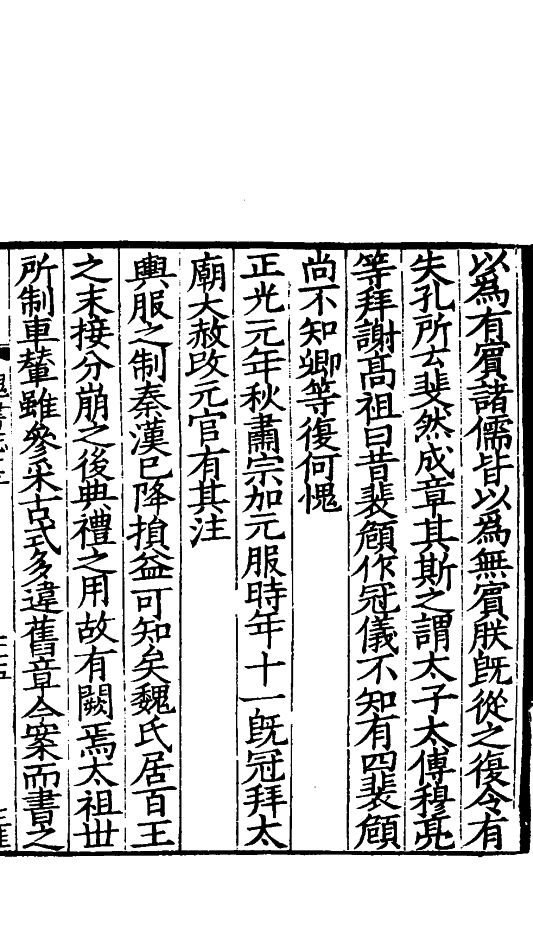 以爲有賔諸儒皆以爲無賔朕旣從之復令有
失孔所云斐然成章其斯之謂太子太傅穆亮
等拜謝高祖曰昔裴頠作冠儀不知有四裴頠
尚不知卿等復何愧
正光元年秋肅宗加元服時年十一旣冠拜太
廟大赦改元官有其注
輿服之制秦漢已降損益可知矣魏氏居百王
之末接分崩之後典禮之用故有闕焉太祖世
所制車輦雖參采古式多違舊章今案而書之